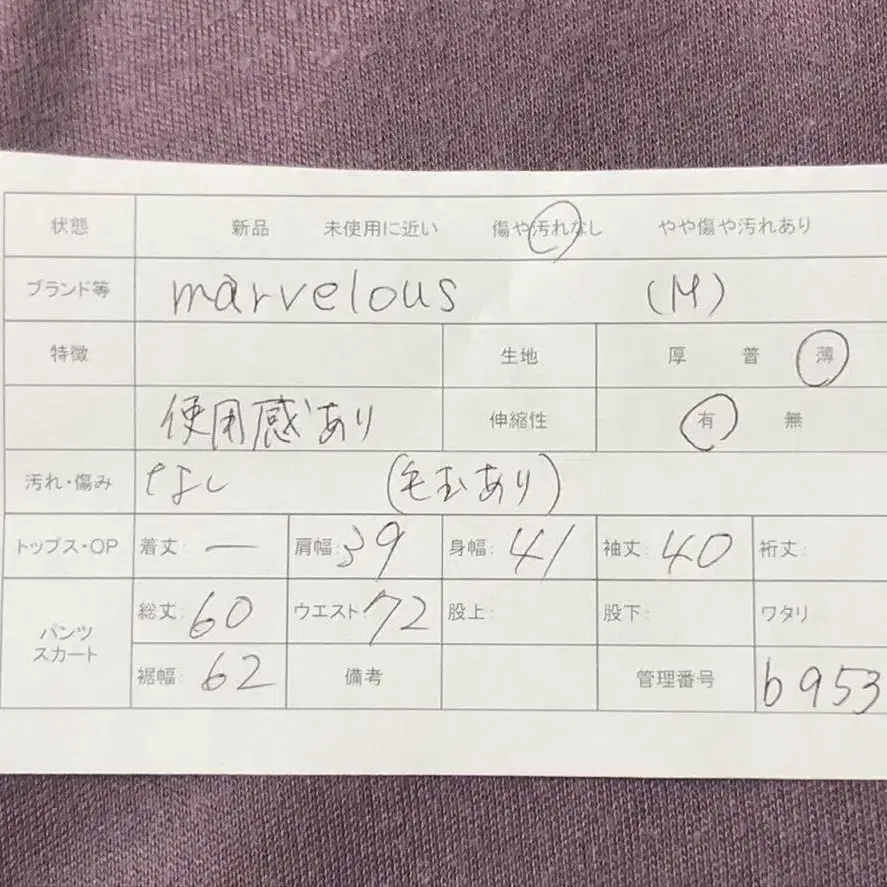 状態 新品 未使用に近い 傷や汚れなし やや傷や汚れあり
ブランド等 marvelous (M)
特徴 生地 厚 普 薄
使用感あり 伸縮性 有 無
汚れ・傷み なし (毛玉あり)
トップス・OP 着丈: — 肩幅: 39 身幅: 41 袖丈: 40 裄丈:
パンツ スカート 総丈: 60 ウエスト: 72 股上: 股下: ワタリ
裾幅: 62 備考 管理番号 b953